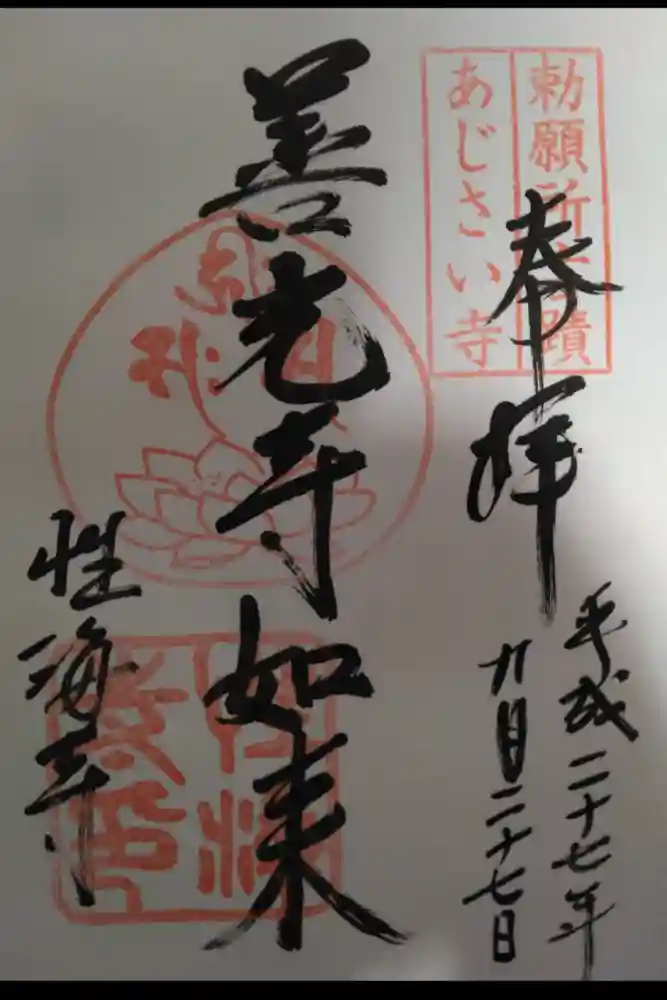 勅願所古蹟
あじさい寺
奉拝
平成二十七年
九月二十七日
善光寺如来
性海寺